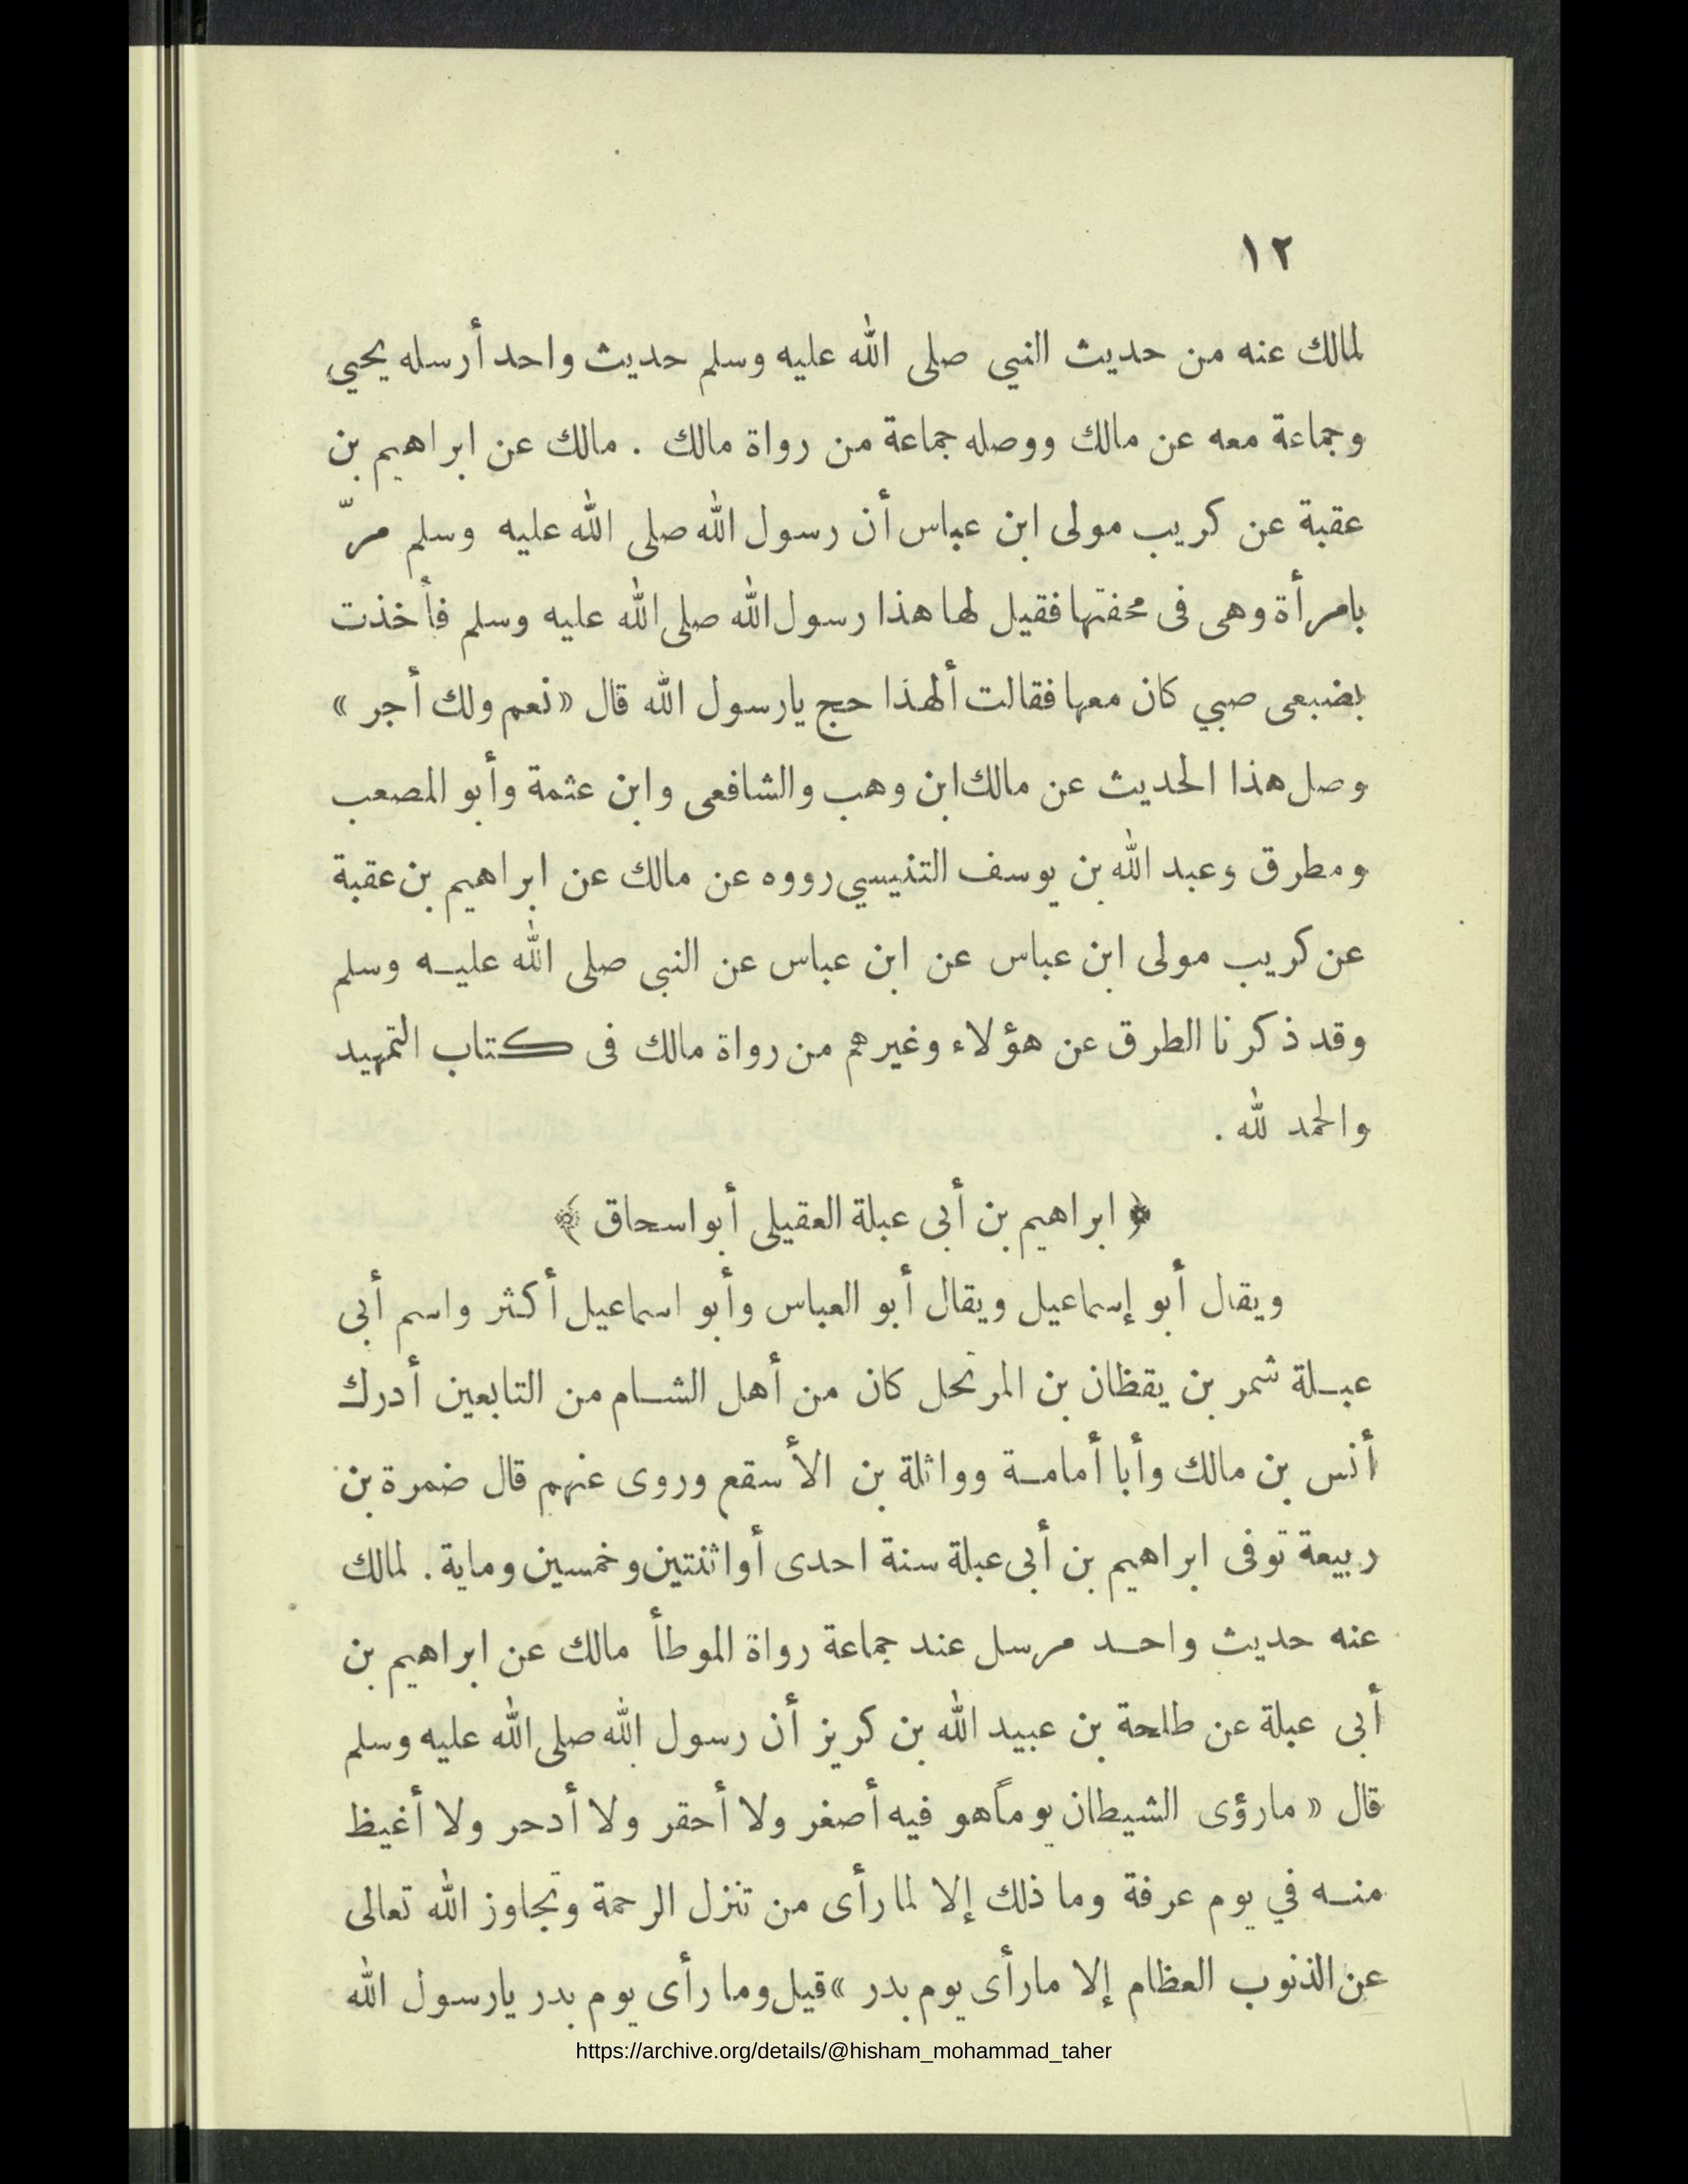 ١٢
لمالك عنه من حديث النبي صلى الله عليه وسلم حديث واحد أرسله يحيي
وجماعة معه عن مالك ووصله جماعة من رواة مالك . مالك عن ابراهيم بن
عقبة عن كريب مولى ابن عباس أن رسول الله صلى الله عليه وسلم مرّ
بامرأة وهى فى محفتها فقيل لها هذا رسول الله صلى الله عليه وسلم فأخذت
بضبعى صبي كان معها فقالت ألهذا حج يارسول الله قال «نعم ولك أجر»
وصل هذا الحديث عن مالك ابن وهب والشافعى وابن عثمة وأبو المصعب
ومطرق وعبد الله بن يوسف التنيسي رووه عن مالك عن ابراهيم بن عقبة
عن كريب مولى ابن عباس عن ابن عباس عن النبى صلى الله عليه وسلم
وقد ذكرنا الطرق عن هؤلاء وغيرهم من رواة مالك فى كتاب التمهيد
والحمد لله .
﴿ ابراهيم بن أبى عبلة العقيلى أبو اسحاق ﴾
ويقال أبو إسماعيل ويقال أبو العباس وأبو اسماعيل أكثر واسم أبى
عبلة شمر بن يقظان بن المرتحل كان من أهل الشام من التابعين أدرك
أنس بن مالك وأبا أمامة وواثلة بن الأسقع وروى عنهم قال ضمرة بن
ربيعة توفى ابراهيم بن أبى عبلة سنة احدى أو اثنتين وخمسين وماية . لمالك
عنه حديث واحد مرسل عند جماعة رواة الموطأ مالك عن ابراهيم بن
أبى عبلة عن طلحة بن عبيد الله بن كريز أن رسول الله صلى الله عليه وسلم
قال «مارؤى الشيطان يوماً هو فيه أصغر ولا أحقر ولا أدحر ولا أغيظ
منه في يوم عرفة وما ذلك إلا لما رأى من تنزل الرحمة وتجاوز الله تعالى
عن الذنوب العظام إلا مارأى يوم بدر» قيل وما رأى يوم بدر يارسول الله
https://archive.org/details/@hisham_mohammad_taher